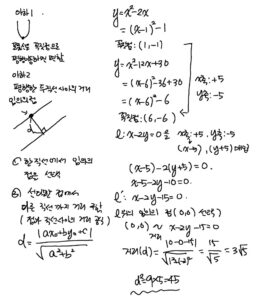 아하1
포물선 꼭짓점으로
평행이동하면 편함
아하2
평행한 두직선사이의 거리
임의의점
d
① 한 직선에서 임의의
점은 선택
② 선택한 점에서
다른 직선까지 거리 구함
(점과 직선사이의 거리 공식)
d = |ax₀+by₀+c| / √(a²+b²)
y=x²-2x
=(x-1)²-1
꼭짓점: (1,-1)
y=x²-12x+30
=(x-6)²-36+30
=(x-6)²-6
꼭짓점: (6,-6)
x축: +5
y축: -5
l: x-2y=0을 x축: +5, y축: -5
(x-5), (y+5) 대입
(x-5)-2(y+5)=0
x-5-2y-10=0
l': x-2y-15=0
l 위의 임의의 점 (0,0) 선택
(0,0) ~ x-2y-15=0
거리(d) = |0-0-15| / √(1²+(-2)²) = 15/√5 = 3√5
d²=9×5=45